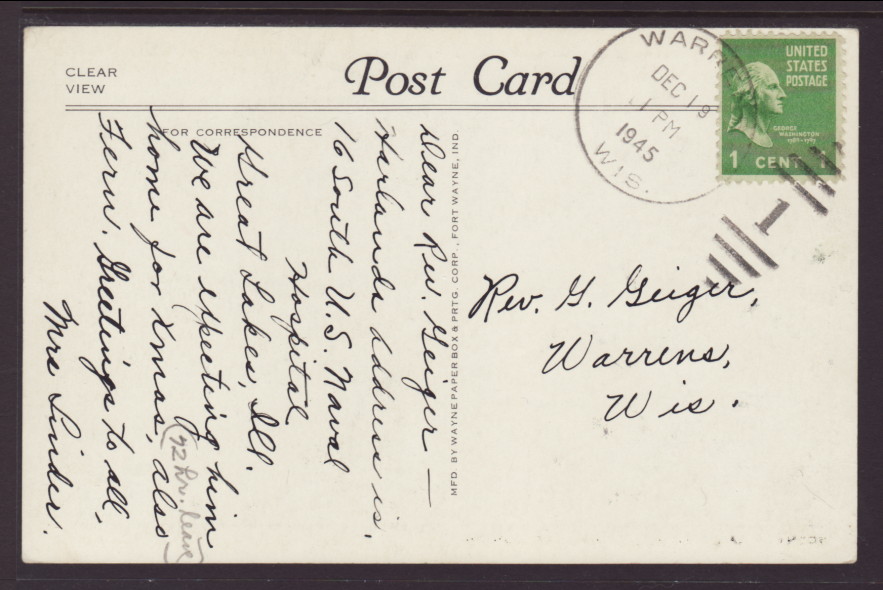 CLEAR
VIEW
Post Card
FOR CORRESPONDENCE
WARRENS
DEC 19
1 PM
1945
WIS.
UNITED
STATES
POSTAGE
GEORGE
WASHINGTON
1789-1797
1 CENT 1
1
Dear Rev. Geiger —
Harlands address is,
16 South U.S. Naval
Hospital
Great Lakes, Ill.
We are expecting him
(72 hr. leave)
home for Xmas, also
Fern. Greetings to all,
Mrs Linder.
MFD BY WAYNE PAPER BOX & PRTG. CORP., FORT WAYNE, IND.
Rev. G. Geiger,
Warrens,
Wis.